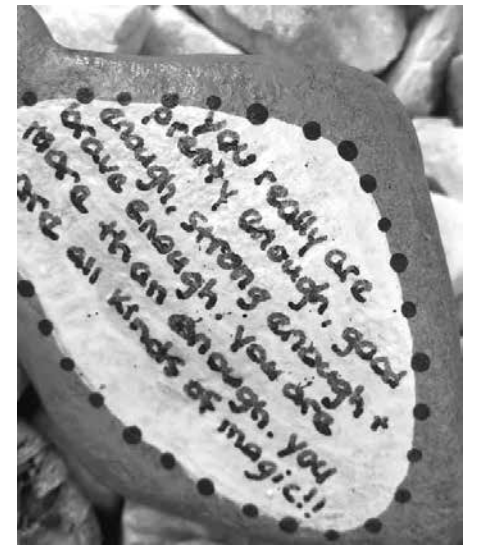 you really are
pretty enough. good
enough. strong enough +
brave enough. you are
more than enough. you
are all kinds of magic!!